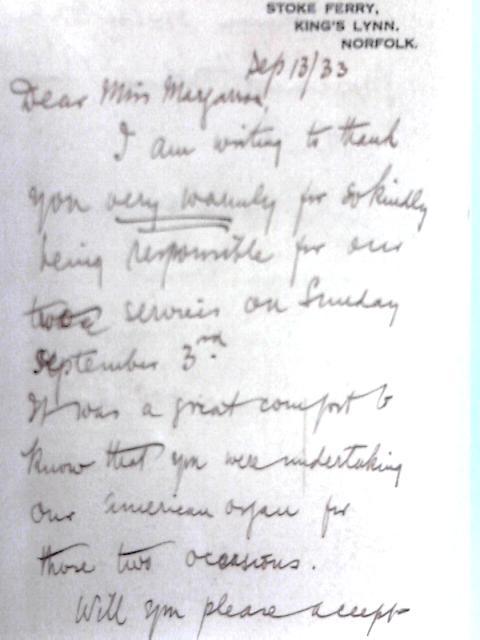 STOKE FERRY,
KING'S LYNN,
NORFOLK.
Sep 13/33
Dear Miss
I am writing to thank
you very warmly for so kindly
being responsible for our
two services on Sunday
September 3rd.
It was a great comfort to
know that you were undertaking
our American organ for
those two occasions.
Will you please accept